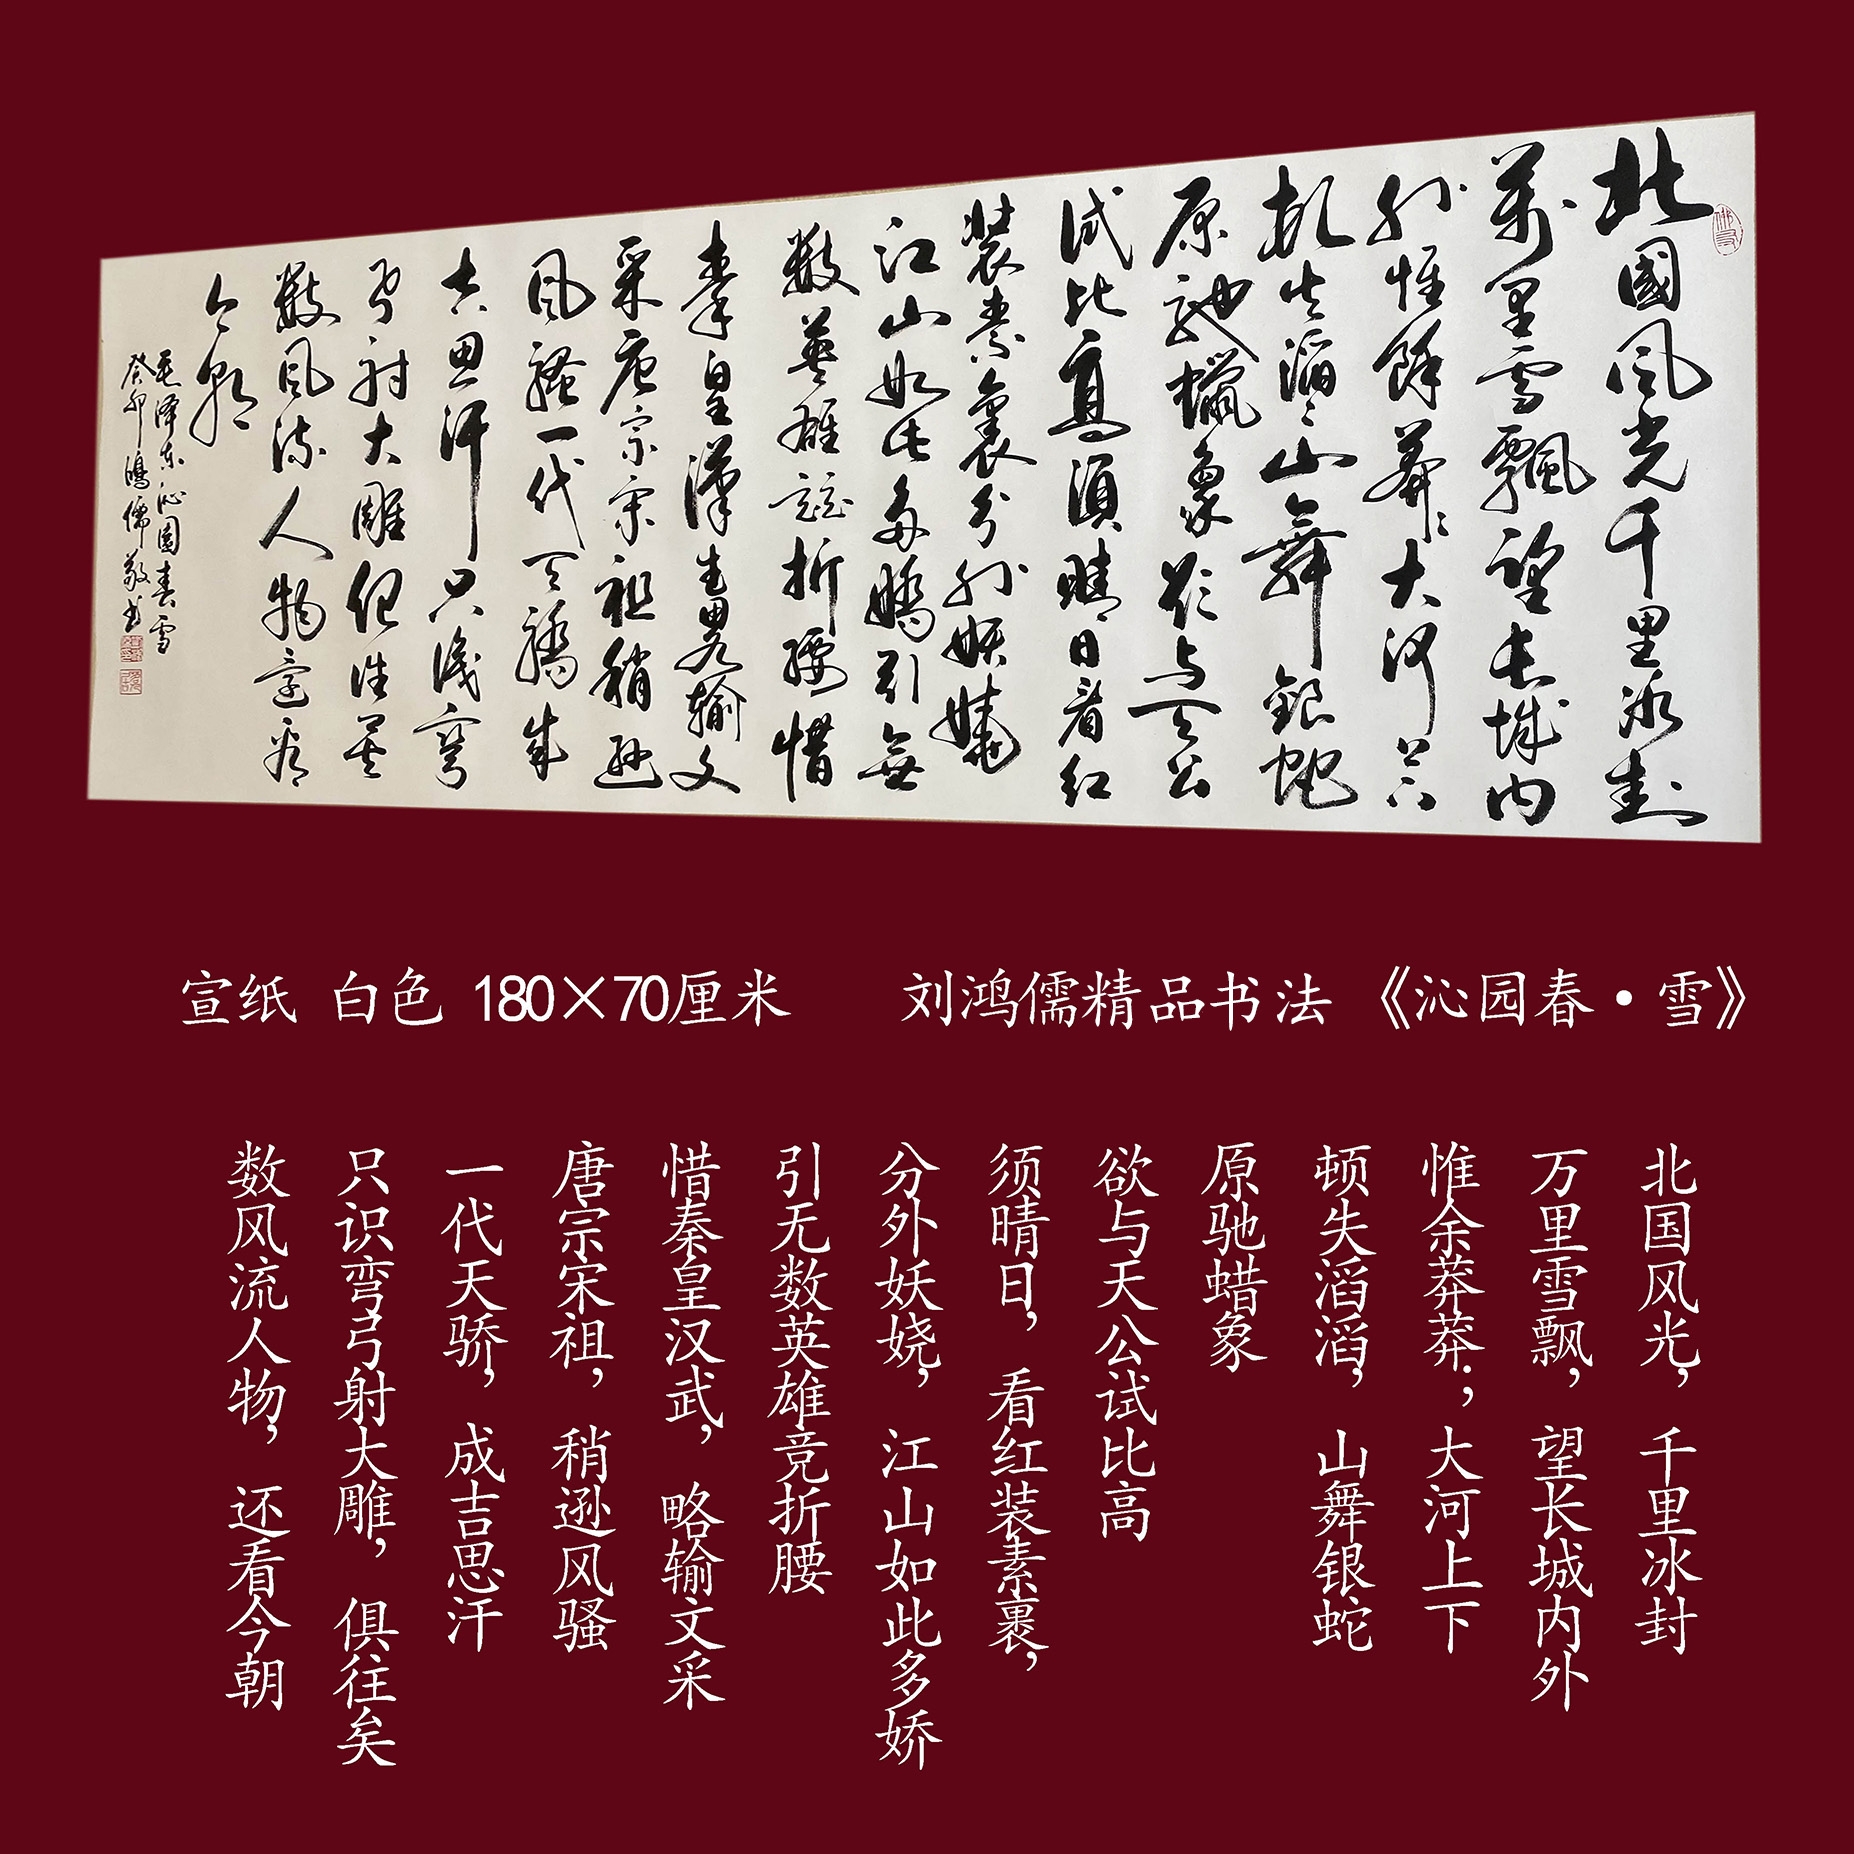 北國風光千里冰封
萬里雪飄望長城内
外惟餘莽々大河上下
頓失滔々山舞銀蛇
原馳蠟象欲与天公
試比高須晴日看红
裝素裹分外妖娆
江山如此多嬌引無
數英雄競折腰惜
秦皇漢武略輸文
采唐宗宋祖稍逊
風騷一代天驕成
吉思汗只識彎
弓射大雕俱往矣
數風流人物还看
今朝
毛泽东沁園春雪
癸卯鴻儒敬书
宣纸 白色 180×70厘米 刘鸿儒精品书法《沁园春·雪》
北国风光，千里冰封
万里雪飘，望长城内外
惟余莽莽；大河上下
顿失滔滔，山舞银蛇
原驰蜡象
欲与天公试比高
须晴日，看红装素裹，
分外妖娆，江山如此多娇
引无数英雄竞折腰
惜秦皇汉武，略输文采
唐宗宋祖，稍逊风骚
一代天骄，成吉思汗
只识弯弓射大雕，俱往矣
数风流人物，还看今朝